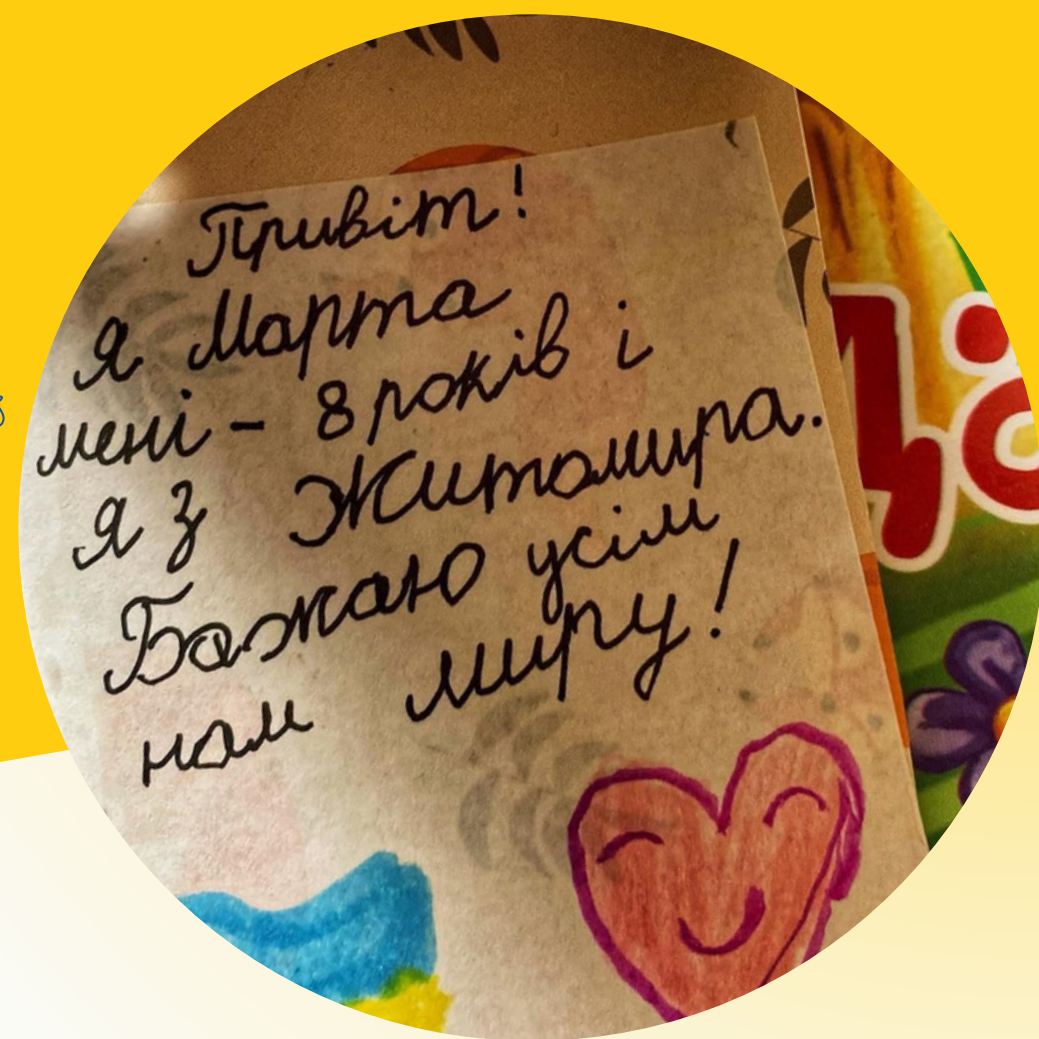 Привіт!
Я Марта
мені - 8 років і
я з Житомира.
Бажаю усім
нам миру!